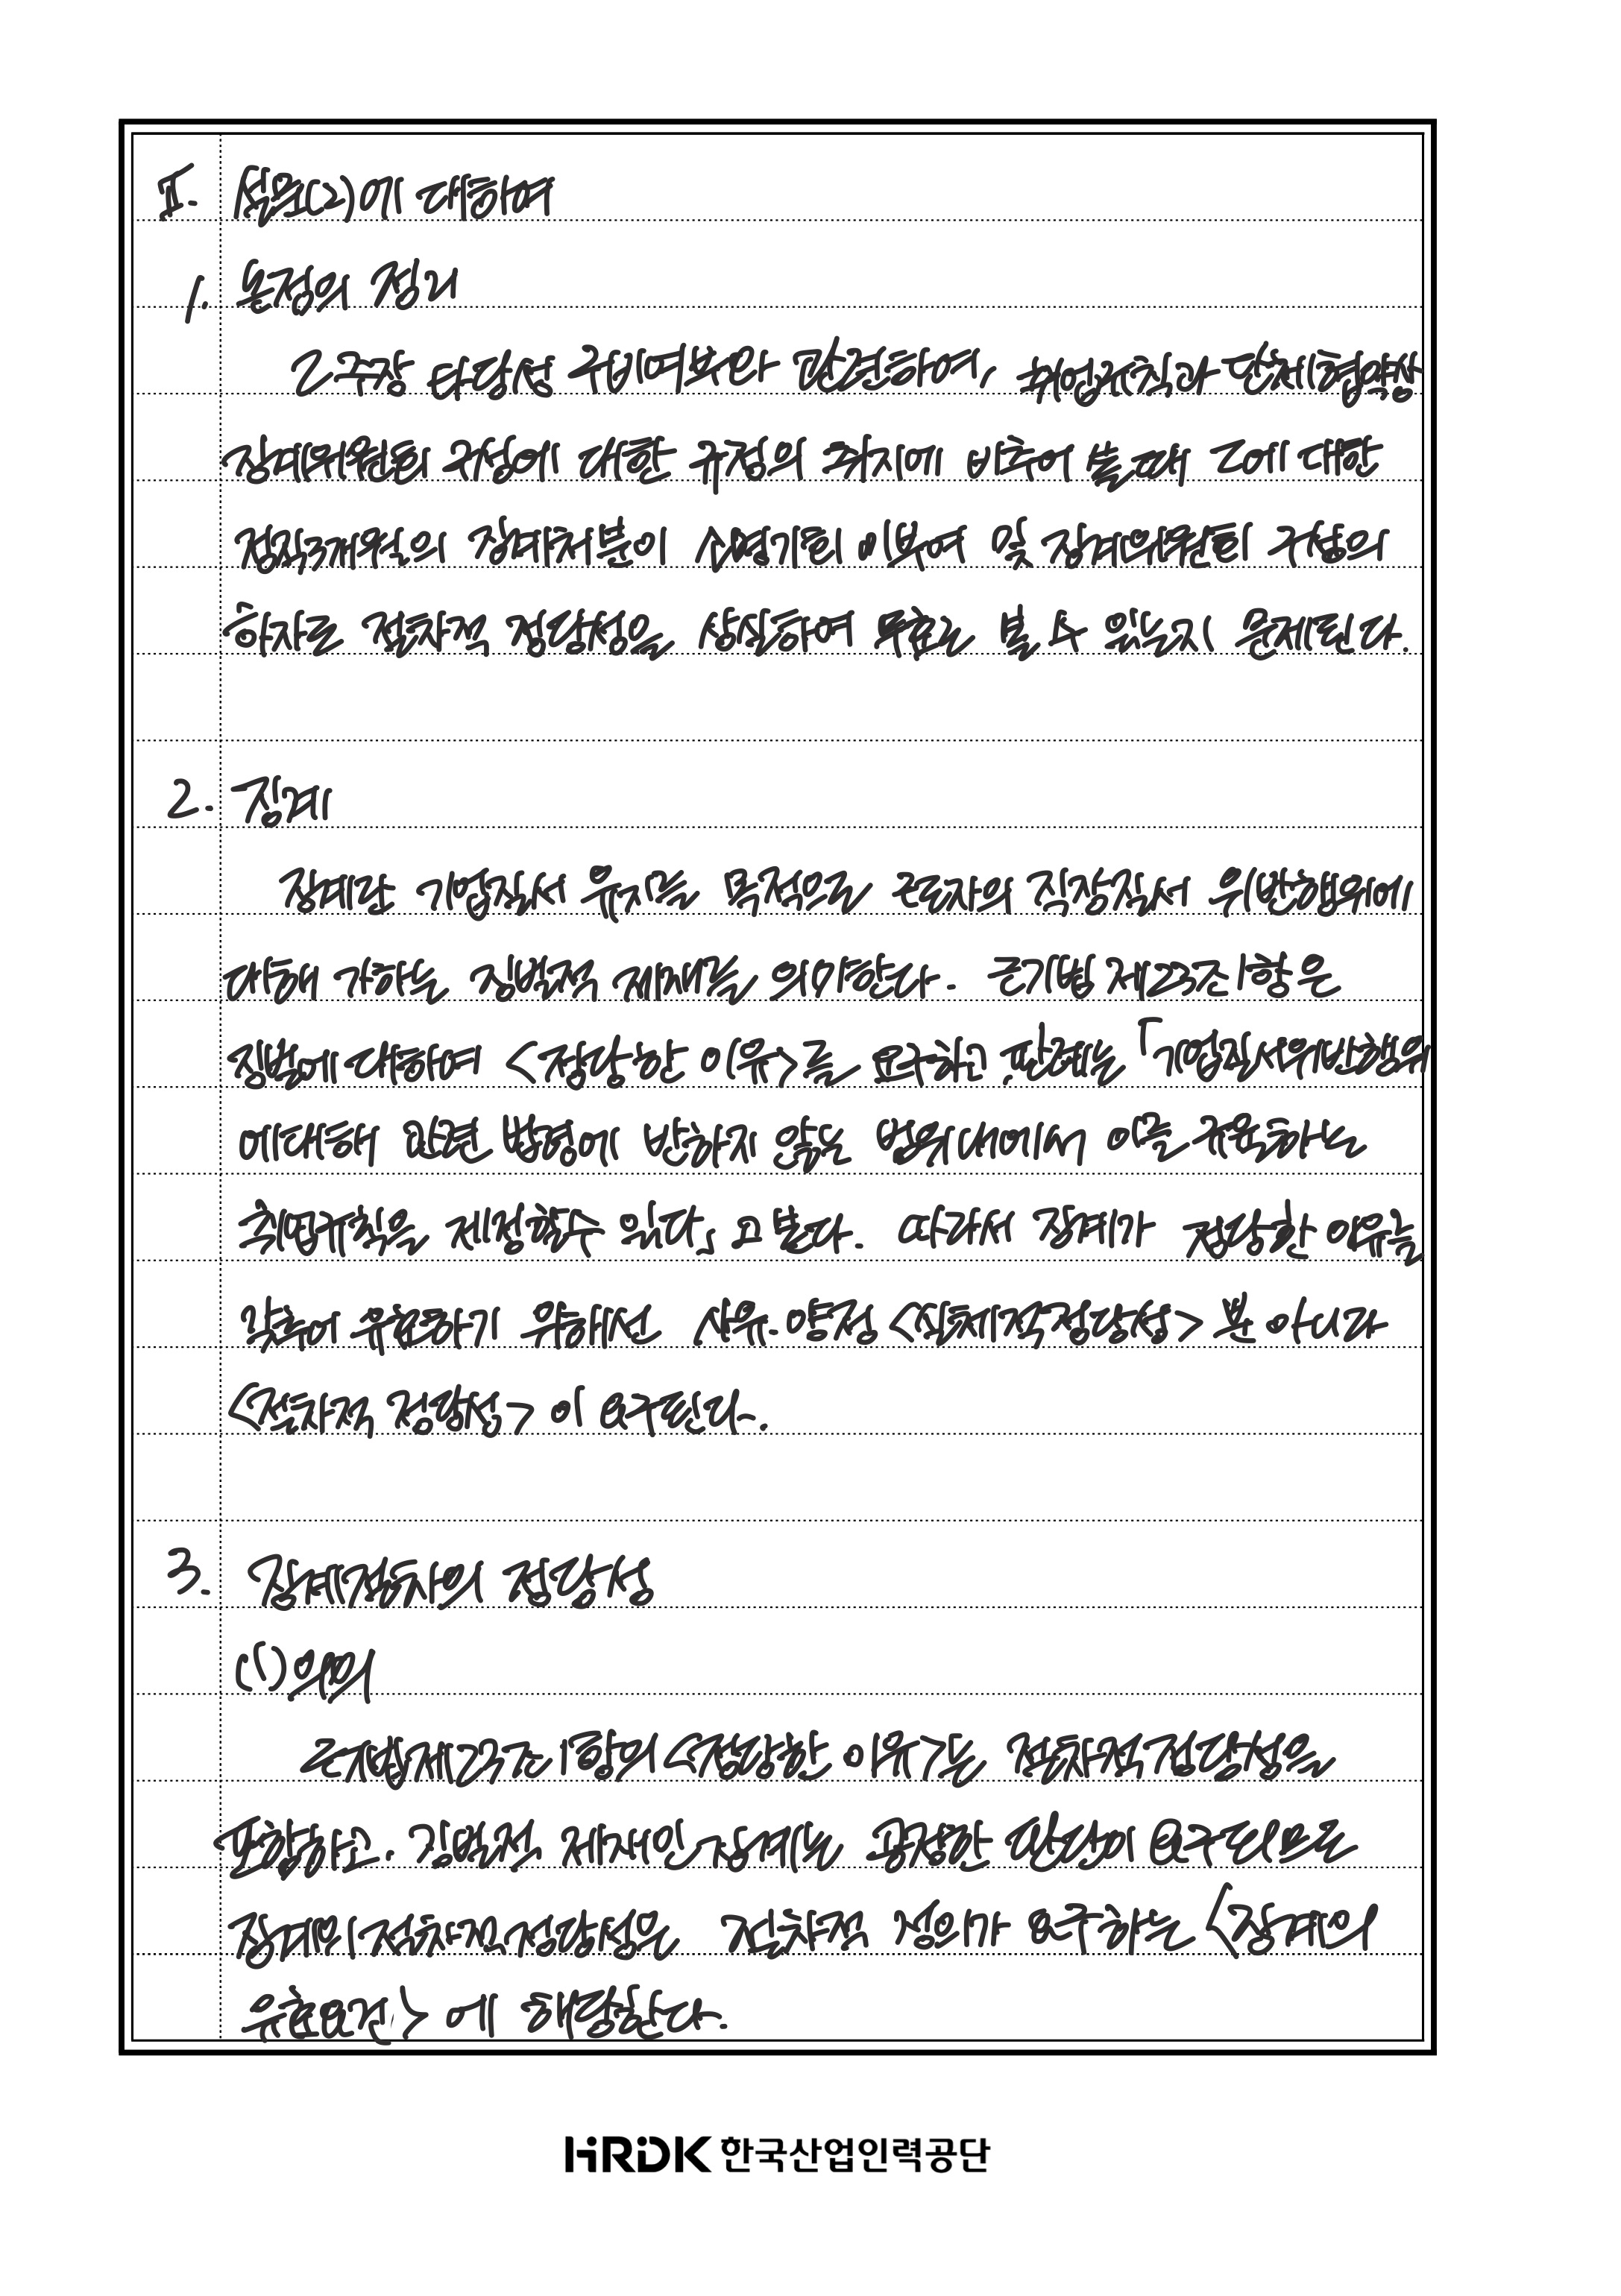 Ⅱ. 설문(2)에 대하여
1. 논점의 정리
乙주장 타당성 구비여부와 관련하여, 취업규칙과 단체협약상
징계위원회 구성에 대한 규정의 취지에 비추어 볼때 乙에 대한
정직3개월의 징계처분이 소명기회 미부여 및 징계위원회 구성의
하자로 절차적 정당성을 상실하여 무효로 볼 수 있는지 문제된다.
2. 징계
징계란 기업질서 유지를 목적으로 근로자의 직장질서 위반행위에
대해 가하는 징벌적 제재를 의미한다. 근기법 제23조 1항은
징벌에 대하여 <정당한 이유>를 요구하고 판례는 「기업질서위반행위
에대하여 관련 법령에 반하지 않는 범위내에서 이를 규율하는
취업규칙을 제정할수 있다」고 본다. 따라서 징계가 정당한 이유를
갖추어 유효하기 위해선 사유·양정 <실체적정당성> 뿐 아니라
<절차적 정당성>이 요구된다.
3. 징계절차의 정당성
(1) 의의
근기법제23조 1항의 <정당한 이유>는 절차적정당성을
포함하고, 징벌적 제재인 징계에는 공정한 이 요구되므로
징계의 절차적정당성은 절차적 정의가 요구하는 <징계의
유효요건>에 해당한다.
HRDK 한국산업인력공단